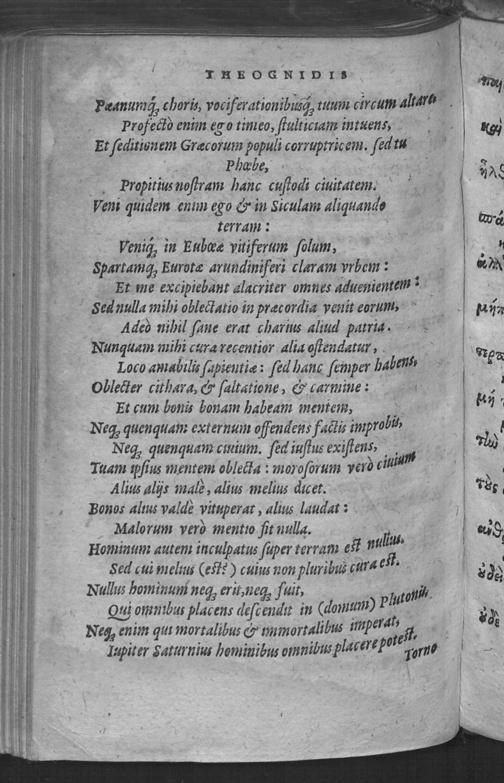 THEOGNIDIS
Pæanumq́ꝫ choris, vociferationibusq́ꝫ tuum circum altare.
Profectò enim ego timeo, stulticiam intuens,
Et seditionem Græcorum populi corruptricem. sed tu
Phœbe,
Propitius nostram hanc custodi ciuitatem.
Veni quidem enim ego & in Siculam aliquando
terram:
Veniq́ꝫ in EubϾ vitiferum solum,
Spartamq́ꝫ Eurotæ arundiniferi claram vrbem:
Et me excipiebant alacriter omnes aduenientem:
Sed nulla mihi oblectatio in præcordia venit eorum,
Adeò nihil sane erat charius aliud patria.
Nunquam mihi cura recentior alia ostendatur,
Loco amabilis sapientiæ: sed hanc semper habens,
Oblecter cithara, & saltatione, & carmine:
Et cum bonis bonam habeam mentem,
Neqꝫ quenquam externum offendens factis improbis,
Neqꝫ quenquam ciuium. sed iustus existens,
Tuam ipsius mentem oblecta: morosorum verò ciuium
Alius alijs malè, alius melius dicet.
Bonos alius valdè vituperat, alius laudat:
Malorum verò mentio fit nulla.
Hominum autem inculpatus super terram est nullus.
Sed cui melius (est?) cuius non pluribus cura est.
Nullus hominum neqꝫ erit, neqꝫ fuit,
Qui omnibus placens descendit in (domum) Plutonis.
Neqꝫ enim qui mortalibus & immortalibus imperat,
Iupiter Saturnius hominibus omnibus placere potest.
Torno